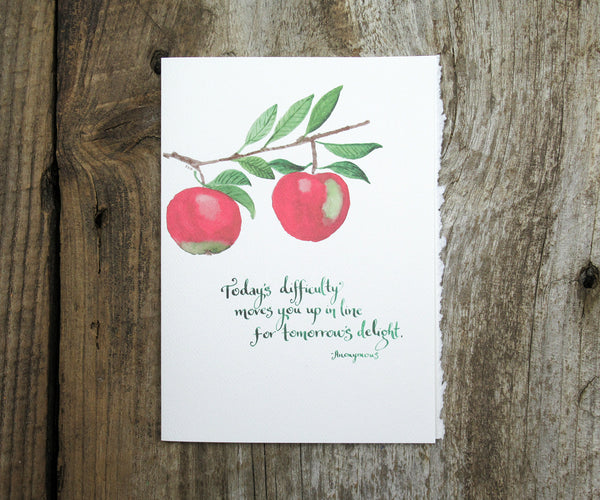 Today's difficulty
moves you up in line
for tomorrow's delight.
-Anonymous